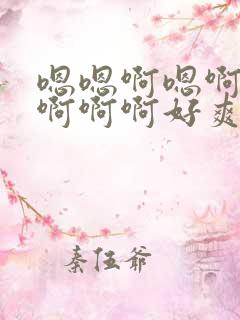 嗯嗯啊嗯啊
啊啊啊好爽
秦伍爷